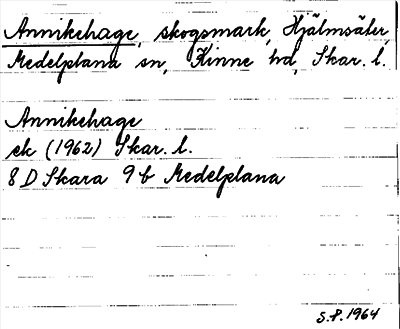 Annikehage, skogsmark, Hjälmsäter,
Medelplana sn, Kinne hd, Skar. l.
Annikehage
ek (1962) Skar. l.
8 D Skara 9 b Medelplana
S.P. 1964